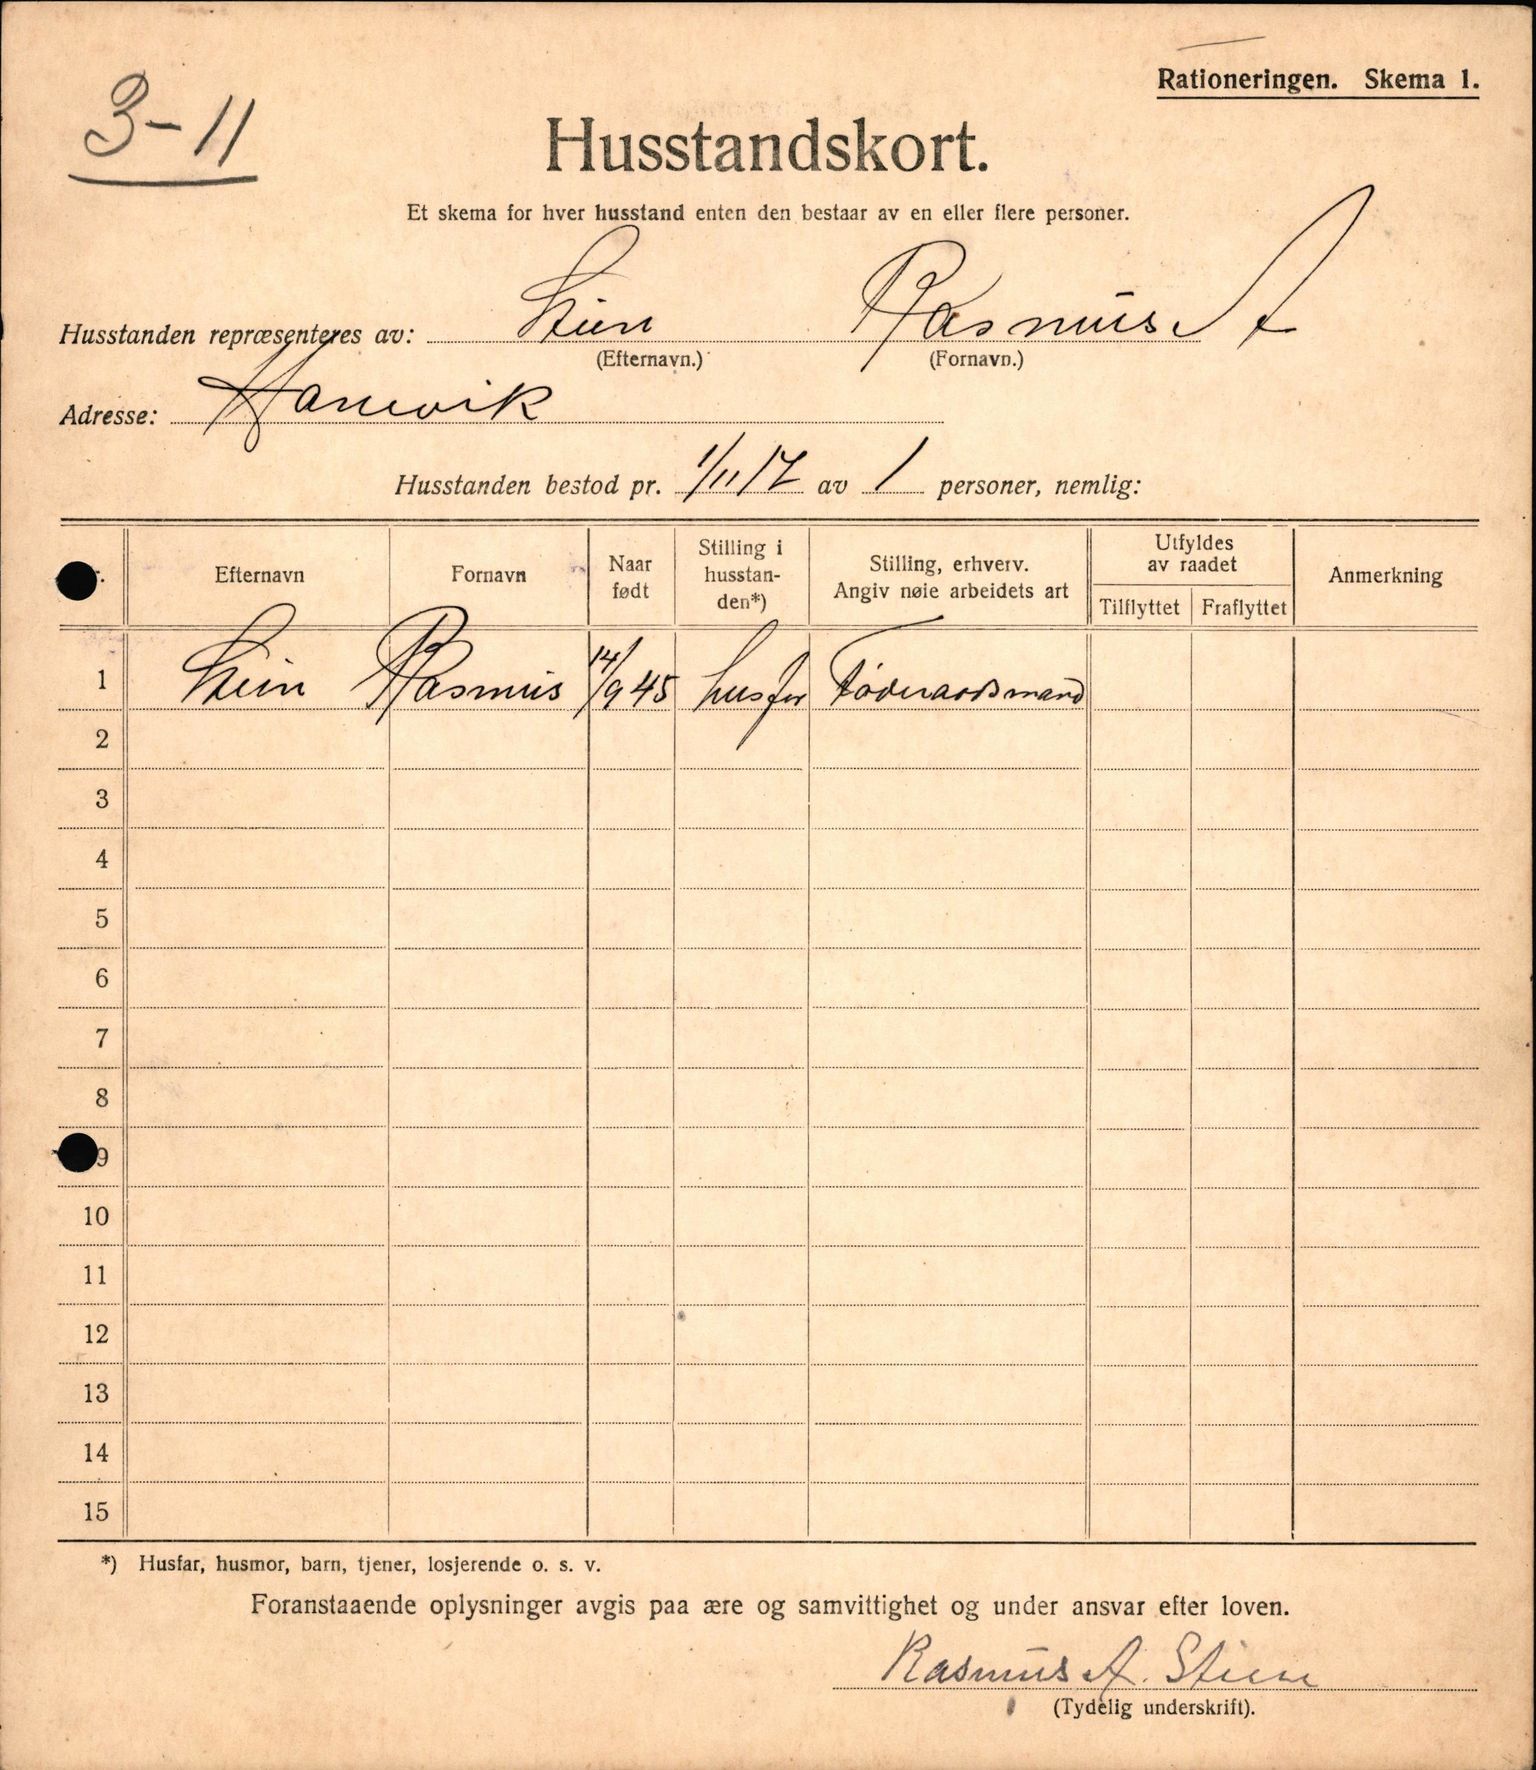 3-11
Rationeringen. Skema 1.
Husstandskort.
Et skema for hver husstand enten den bestaar av en eller flere personer.
Husstanden repræsenteres av: Stien Rasmus A
(Efternavn.) (Fornavn.)
Adresse: Hanevik
Husstanden bestod pr. 1/11 17 av 1 personer, nemlig:
Efternavn Fornavn Naar født Stilling i husstanden*) Stilling, erhverv. Angiv nøie arbeidets art Utfyldes av raadet Tilflyttet Fraflyttet Anmerkning
1 Stien Rasmus 14/9 45 husfar Føderaadsmand
2
3
4
5
6
7
8
9
10
11
12
13
14
15
*) Husfar, husmor, barn, tjener, losjerende o. s. v.
Foranstaaende oplysninger avgis paa ære og samvittighet og under ansvar efter loven.
Rasmus A. Stien
(Tydelig underskrift).